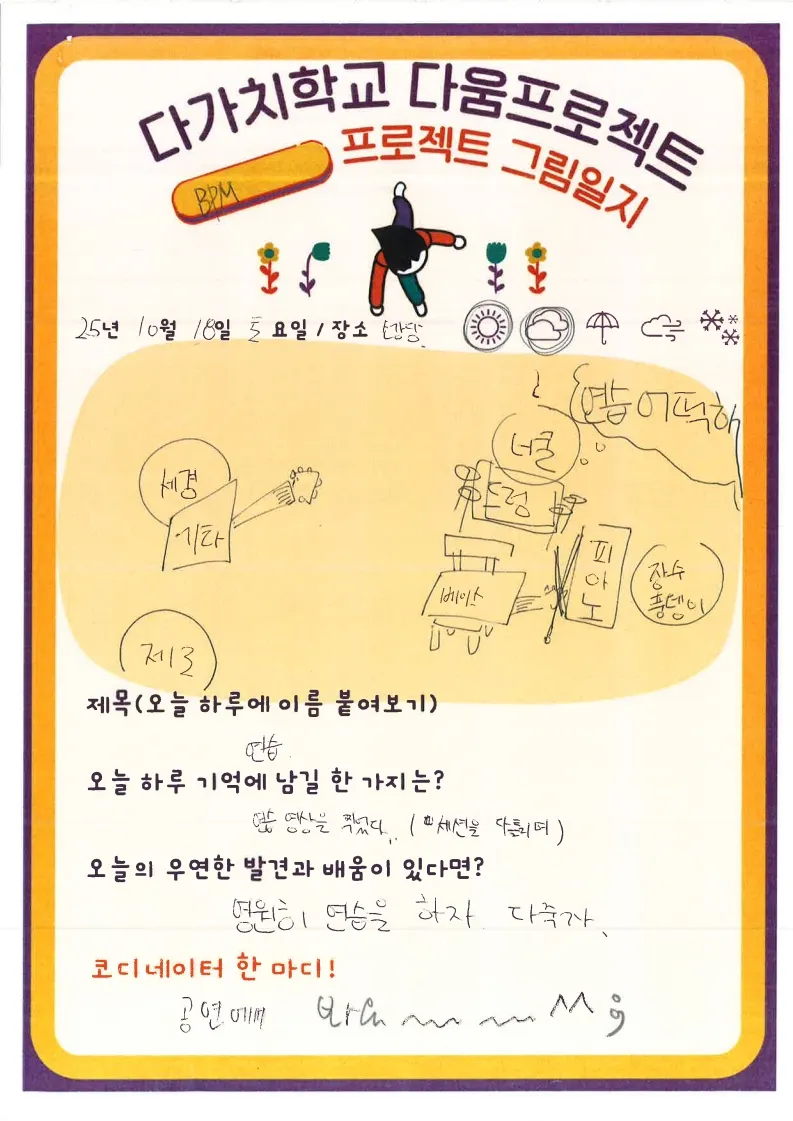 다가치학교 다움프로젝트
프로젝트 그림일지
BPM
25년 10월 18일 토 요일 / 장소
연습 어떡해
너클
세경
드럼
기타
피아노
장수풍뎅이
베이스
제로
제목(오늘 하루에 이름 붙여보기)
연습.
오늘 하루 기억에 남길 한 가지는?
연습 영상을 찍었다. ( 세션을 다 틀리며 )
오늘의 우연한 발견과 배움이 있다면?
영원히 연습을 하자. 다죽자.
코디네이터 한 마디!
공연에서